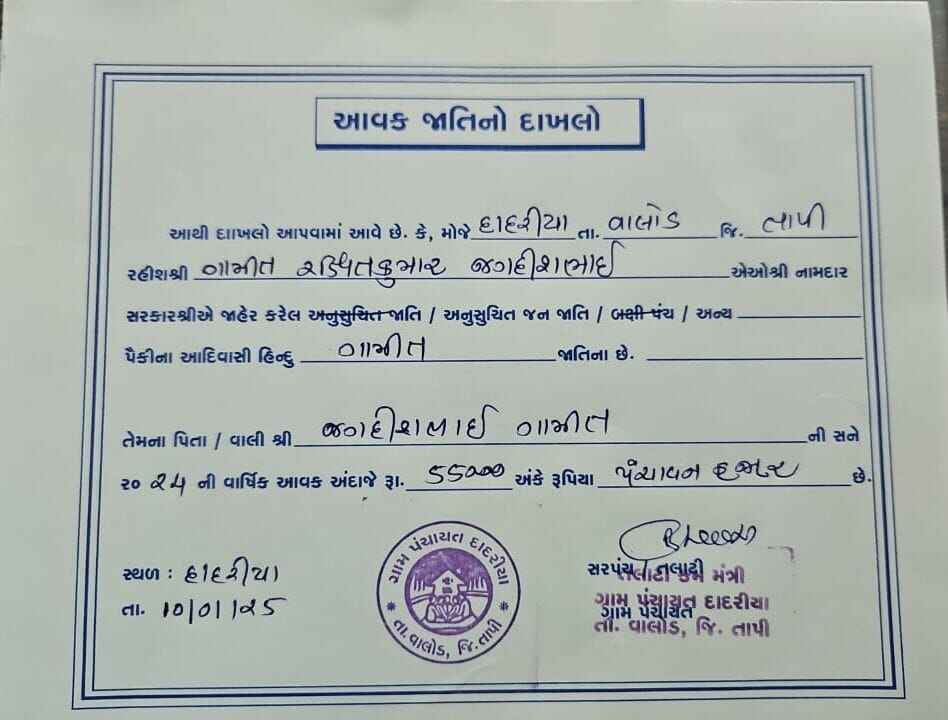 આવક જાતિનો દાખલો
આથી દાાખલો આપવામાં આવે છે. કે, મોજે દાદરીયા તા. વાલોડ જિ. તાપી
રહીશશ્રી ગામીત રક્ષિતકુમાર જગદીશભાઈ એઓશ્રી નામદાર
સરકારશ્રીએ જાહેર કરેલ અનુસુચિત જાતિ / અનુસુચિત જન જાતિ / બક્ષી પંચ / અન્ય
પૈકીના આદિવાસી હિન્દુ ગામીત જાતિના છે.
તેમના પિતા / વાલી શ્રી જગદીશભાઈ ગામીત ની સને
૨૦ ૨૪ ની વાર્ષિક આવક અંદાજે રૂા. 55000 અંકે રૂપિયા પંચાવન હજાર છે.
સ્થળ : દાદરીયા
તા. 10/01/25
ગ્રામ પંચાયત દાદરીયા
તા. વાલોડ, જિ. તાપી
સરપંચ / તલાટી કમ મંત્રી
ગ્રામ પંચાયત દાદરીયા
તા. વાલોડ, જિ. તાપી